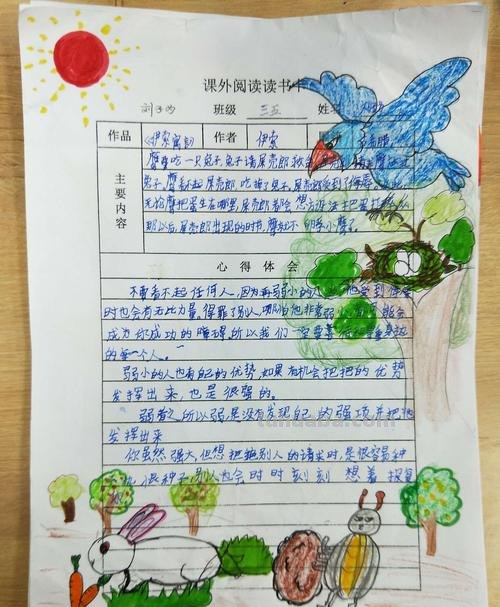 课外阅读读书卡
刘子 班级 三五 姓名
作品 《伊索寓言》 作者 伊索
主要内容
鹰要吃一只兔子兔子请屎壳郎救
兔子,鹰看不起屎壳郎 吃掉了兔子,屎壳郎受到了
无论鹰把蛋生在哪里,屎壳郎都会想方设法把蛋打
那以后,屎壳郎出现的时节,鹰就不孵小鹰了。
心得体会
不要看不起任何人,因为再弱小的人 他受到
时也会有无比力量,得罪了别人,哪怕他非常弱小 会
成为你成功的障碍,所以我们一定要 重身边
的每一个人。
弱小的人也有自己的优势,如果有机会把把的优势
发挥出来,也是很强的。
弱者之所以弱是没有发现自己的强项并把他
发挥出来
你虽然强大但想拒绝别人的请求时,是很容易种
仇恨种子,别人也会时时刻刻 想着报复
你
tundaba.com